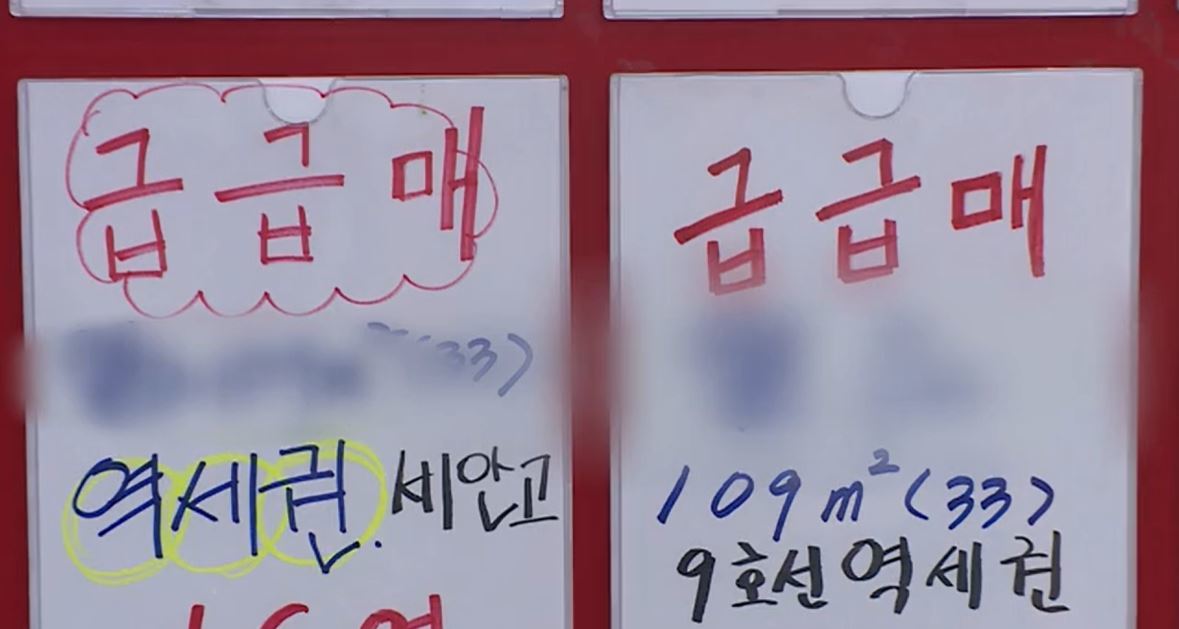 급급매
(33)
역세권. 세안고
급급매
109m²(33)
9호선 역세권